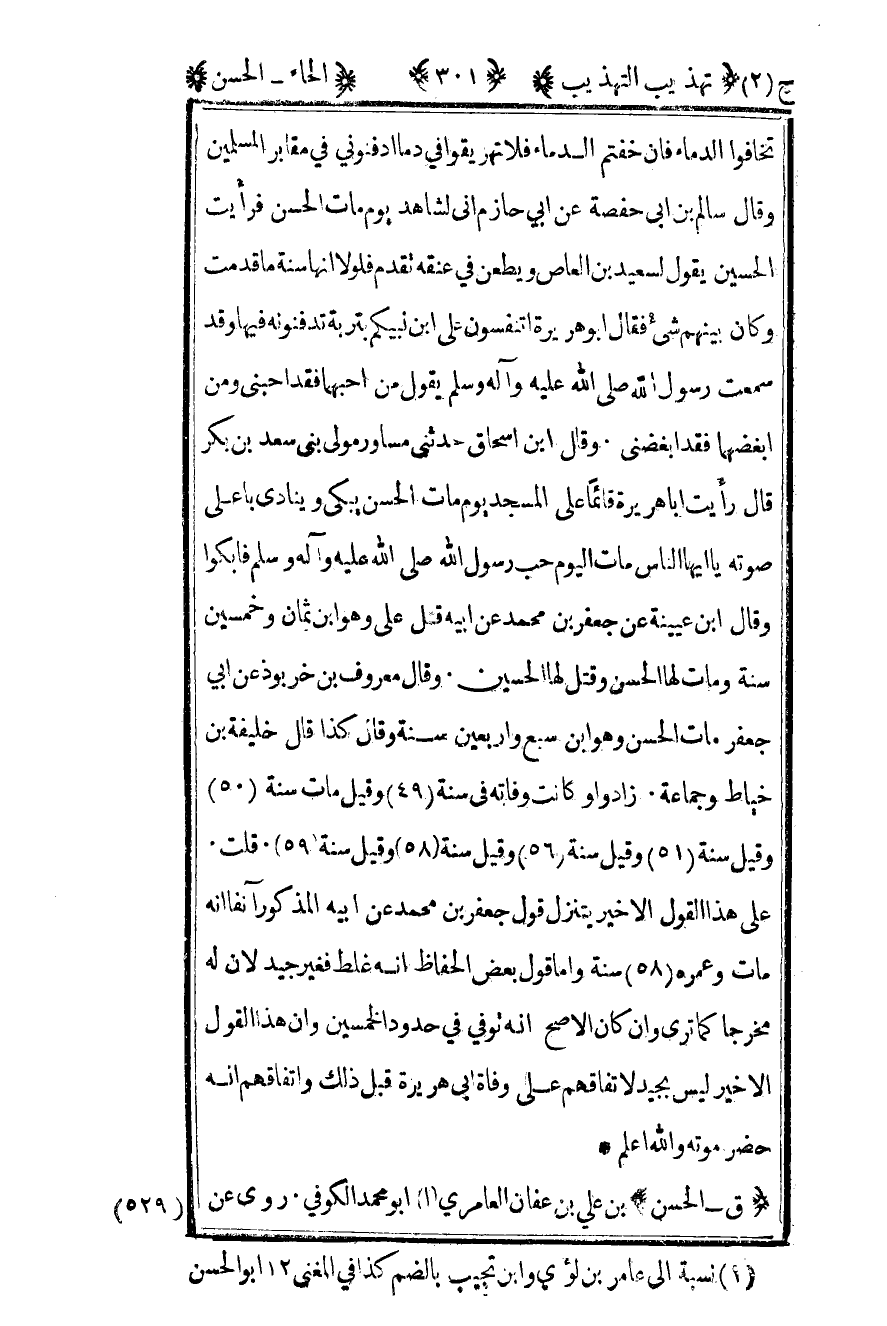 ج (٢) ﴿ تهذيب التهذيب ﴾ ﴿ ٣٠١ ﴾ ﴿ الحاء ـ الحسن ﴾
تخافوا الدماء فان خفتم الدماء فلا تهريقوا في دما ادفنوني في مقابر المسلمين
وقال سالم بن ابى حفصة عن ابي حازم انى لشاهد يوم مات الحسن فرأيت
الحسين يقول لسعيد بن العاص ويطعن في عنقه تقدم فلولا انها سنة ما قدمت
وكان بينهم شئ فقال ابو هريرة اتنفسون على ابن نبيكم بتربة تدفنونه فيها وقد
سمعت رسول الله صلى الله عليه وآله وسلم يقول من احبهما فقد احبنى ومن
ابغضهما فقد ابغضنى ٠ وقال ابن اسحاق حدثنى مساور مولى بنى سعد بن بكر
قال رأيت ابا هريرة قائمًا على المسجد يوم مات الحسن يبكى وينادى باعلى
صوته يا ايها الناس مات اليوم حب رسول الله صلى الله عليه وآله وسلم فابكوا
وقال ابن عيينة عن جعفر بن محمد عن ابيه قتل على وهو ابن ثمان وخمسين
سنة ومات لها الحسن وقتل لها الحسين ٠ وقال معروف بن خربوذ عن ابي
جعفر مات الحسن وهو ابن سبع واربعين سنة وقال كذا قال خليفة بن
خياط وجماعة ٠ زاد واو كانت وفاته فى سنة (٤٩) وقيل مات سنة (٥٠)
وقيل سنة (٥١) وقيل سنة (٥٦) وقيل سنة (٥٨) وقيل سنة (٥٩) ٠ قلت ٠
على هذا القول الاخير يتنزل قول جعفر بن محمد عن ابيه المذكور آنفا انه
مات وعمره (٥٨) سنة واما قول بعض الحفاظ انه غلط فغير جيد لان له
مخرجا كما ترى وان كان الاصح انه توفي في حدود الخمسين وان هذا القول
الاخير ليس بجيد لاتفاقهم على وفاة ابى هريرة قبل ذلك واتفاقهم انه
حضر موته والله اعلم *
﴿ ق ـ الحسن ﴾ بن علي بن عفان العامري (١) ابو محمد الكوفي ٠ روى عن
(٥٢٩)
(١) نسبة الى عامر بن لؤي وابن تجيب بالضم كذا في المغنى ١٢ ابو الحسن